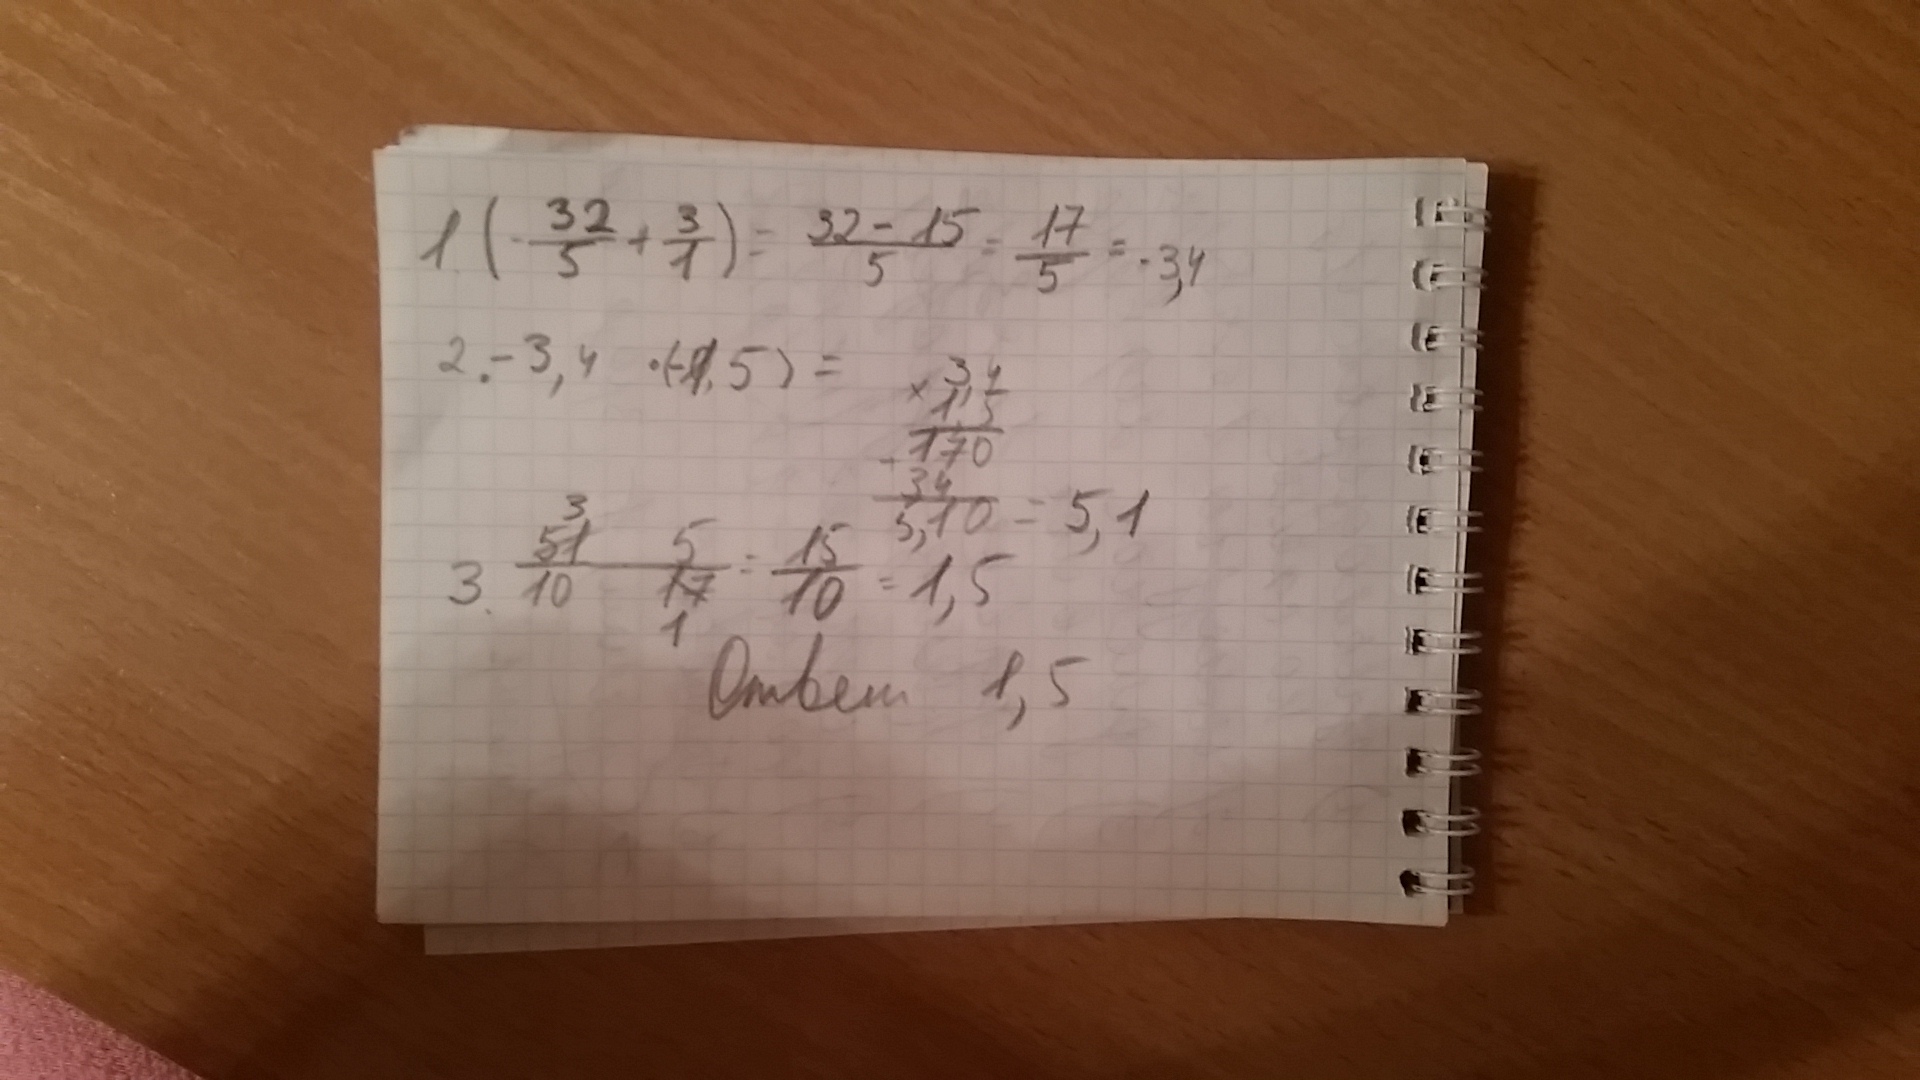 1. (-32/5 + 3/1) = 32-15/5 = 17/5 = -3,4
2. -3,4 · (-1,5) =
3,4
× 1,5
170
+ 34
5,10 = 5,1
3. 51/10 5/17 = 15/10 = 1,5
3
1
Ответ 1,5